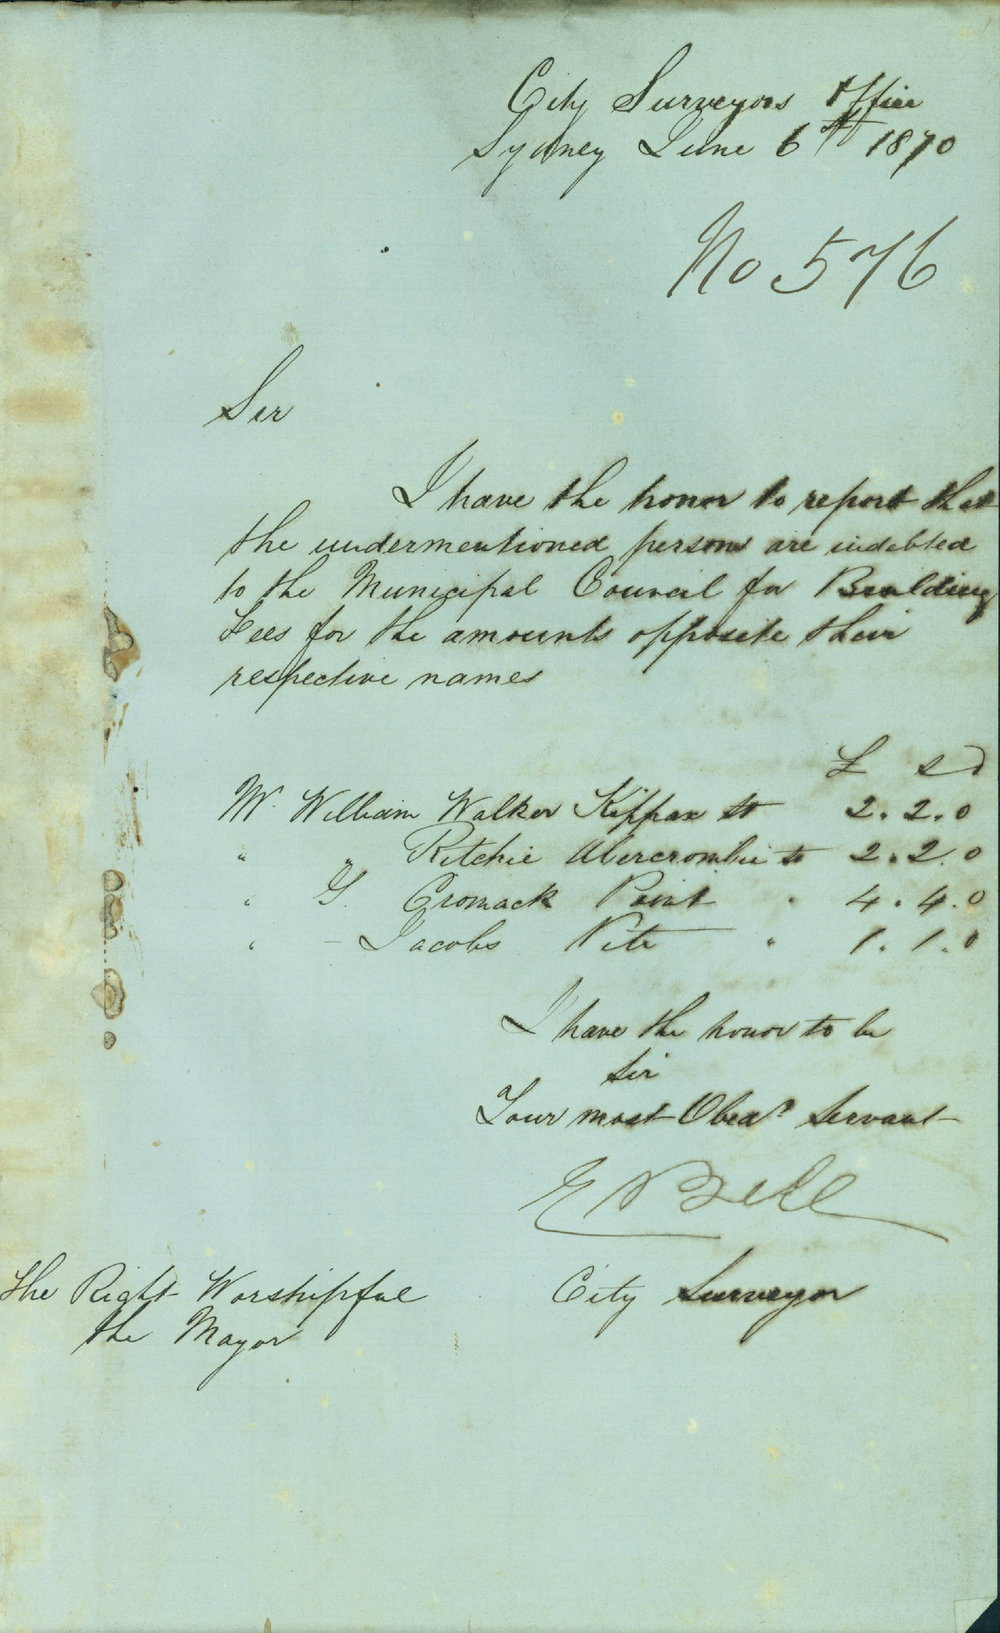 City Surveyors Office
Sydney June 6th 1870
No 576
Sir
I have the honor to report that
the undermentioned persons are indebted
to the Municipal Council for Building
Fees for the amounts opposite their
respective names
£ s d
Mr William Walker Kippax St 2.2.0
" " Ritchie Abercrombie St 2.2.0
" G. Cromack Point " 4.4.0
" - Jacobs Pitt " 1.1.0
I have the honor to be
Sir
Your most Obedt Servant
E Bell
City Surveyor
The Right Worshipful
the Mayor